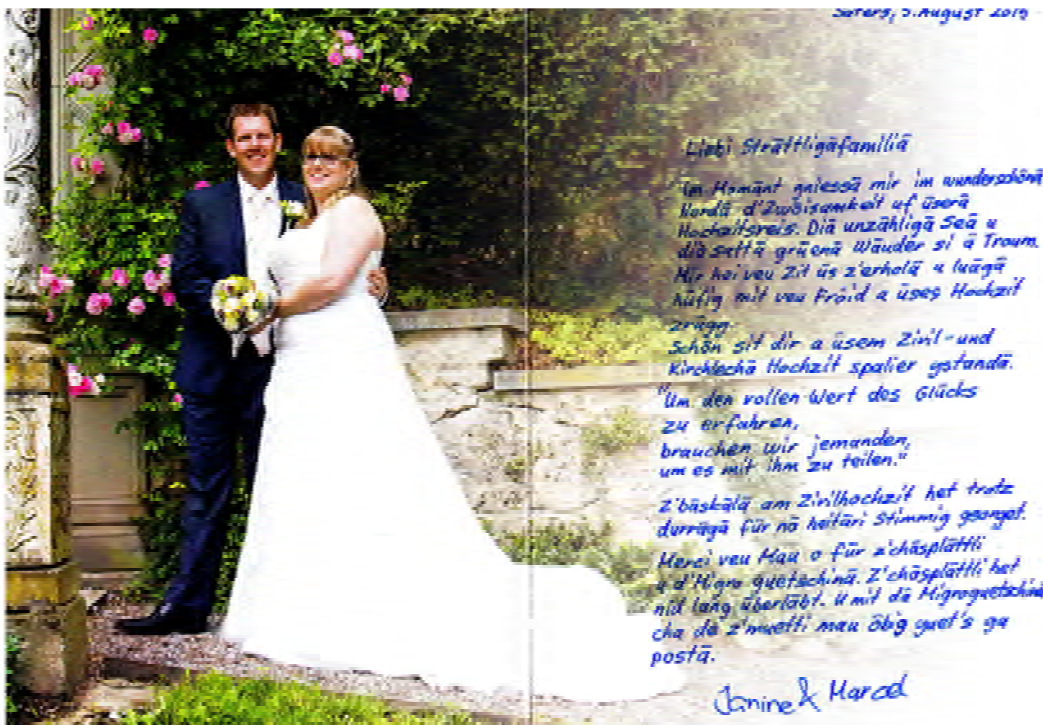 5. August 2015
Liebi Strättligäfamiliä
Im Momänt gniessä mir im wunderschönä
Nordä d'Zwöisamkeit uf üserä
Hochzitsreis. Diä unzähligä Seä u
diä sattä grüenä Wäuder si ä Traum.
Mir hei veu Zit üs z'erholä u luägä
hüfig mit veu Fröid a üses Hochzit
zrügg.
Schön sit dir a üsem Zivil- und
Kirchlechä Hochzit spalier gstandä.
"Um den vollen Wert des Glücks
zu erfahren,
brauchen wir jemanden,
um es mit ihm zu teilen."
Z'bäskälä am Zivilhochzit het trotz
durrägä für nä heitäri Stimmig gsorget.
Merci veu Mau o für z'chäsplättli
u d'Migro guetschinä. Z'chäsplättli het
nid lang überläbt. U mit dä Migroguetschinä
cha de z'muetti mau öbig guet's ga
postä.
Janine & Marcel